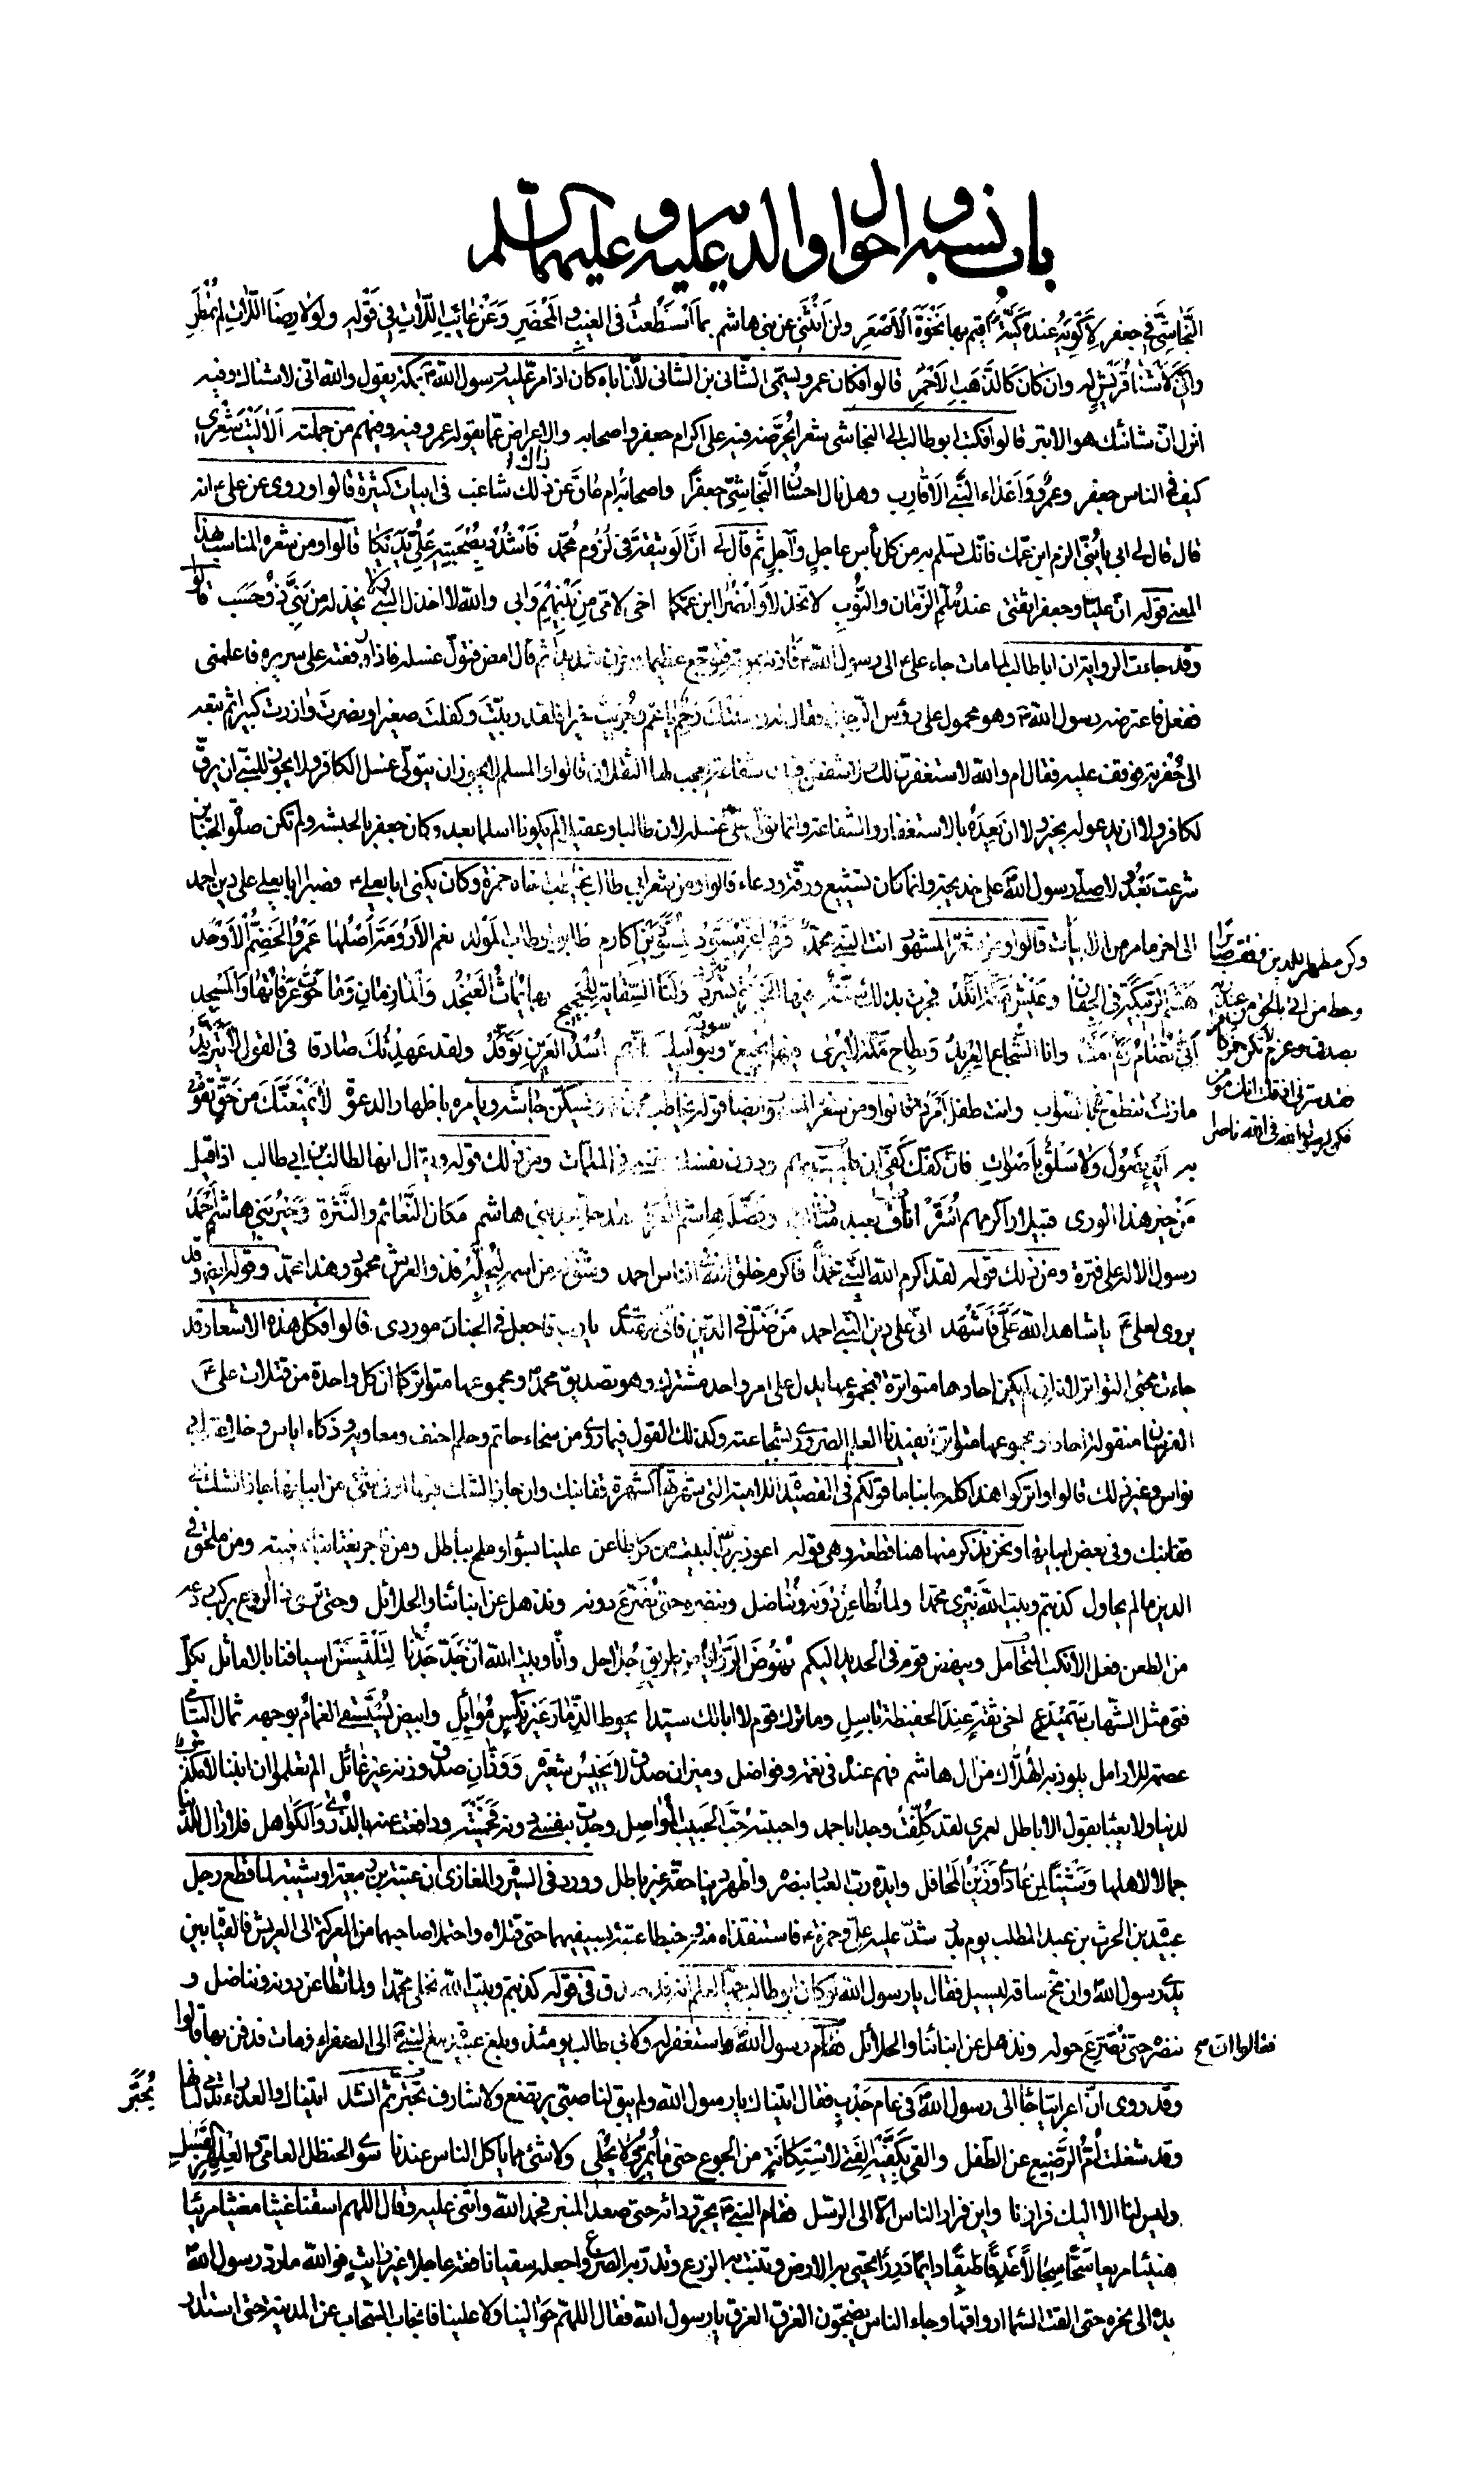 باب نسبه و احوال والديه عليه و عليهما السلم
النجاشي في جعفر لاكويه عنده كية اقيم بها نخوة الاصعر ولن انثني عن بني هاشم بما اسطعت في الغيب و المحضر وعن عائب اللات في قوله ولولا رضا اللات لم تمطر
واني لاشنا قريش له وان كان كالذهب الاحمر قالوا فكان عمرو يسمى الشاني بن الشاني لان اباه كان اذا مر عليه رسول الله ص بمكة يقول والله اني لاشناك وفيه
انزل ان شانئك هو الابتر قالوا فكتب ابو طالب الى النجاشي شعرا يحرضه فيه على اكرام جعفر واصحابه والاعراض عما يقوله عمرو فيه وفيهم من جملته الا ليت شعري
كيف في الناس جعفر وعمرو واعداء النبي الاقارب وهل نال احسان النجاشي جعفرا واصحابه ام عاق عن ذلك شاغب في ابيات كثيرة قالوا وروي عن علي ع انه
قال قال لي ابي يا بني الزم ابن عمك فانك تسلم به من كل بأس عاجل وآجل ثم قال لي ان الوثيقة في لزوم محمد فاشدد بصحبته علي يديكا قالوا ومن شعره المناسب لهذا
المعنى قوله ان عليا وجعفرا ثقتي عند ملم الزمان والنوب لا تخذلا وانصرا ابن عمكما اخي لامي من بينهم وابي والله لا اخذل النبي ولا يخذله من بني ذو حسب قالوا
وقد جاءت الرواية ان ابا طالب لما مات جاء علي ع الى رسول الله ص فاذنه بموته فتوجع عظيما وحزن شديدا ثم قال امض فتول غسله فاذا رفعته على سريره فاعلمني
ففعل فاعترضه رسول الله ص وهو محمول على رؤس الرجال فقال وصلتك رحم يا عم وجزيت خيرا فلقد ربيت وكفلت صغيرا ونصرت وازرت كبيرا ثم تبعه
الى حفرته فوقف عليه فقال ام والله لاستغفرن لك ولاشفعن فيك شفاعة يعجب لها الثقلان قالوا والمسلم لا يجوز ان يتولى غسل الكافر ولا يجوز للنبي ان يرق
لكافر ولا ان يدعو له بخير ولا ان يعده بالاستغفار والشفاعة وانما تولى علي ع غسله لان طالبا وعقيلا لم يكونا اسلما بعد وكان جعفر بالحبشة ولم تكن صلوة الجنائز
شرعت بعد ولا صلى رسول الله ص على خديجة وانما كان تشييع ورقة ودعاء قالوا ومن شعر ابي طالب يخاطب اخاه حمزة وكان يكنى ابا يعلى فصبرا ابا يعلى على دين احمد
وكن مظهرا للدين وفقت صابرا
وحط من اتى بالحق من عند ربه
بصدق وعزم لا تكن حمز كافرا
فقد سرني اذ قلت انك مؤمن
فكن لرسول الله في الله ناصرا
الى اخر ما مر من الابيات قالوا ومن شعره المشهور انت النبي محمد قرم اغر مسود لمسودين اكارم طابوا وطاب المولد نعم الارومة اصلها عمرو الخضم الاوحد
هشم الربيكة في الجفان وعيش مكة انكد فجرت بذلك سنة فيها الخبيزة تثرد ولنا السقاية للحجيج بها يماث العنجد والمأزمان وما حوت عرفاتها والمسجد
اني تضام ولم امت وانا الشجاع العربد وبطاح مكة لا يرى فيها نجيع اسود وبنو ابيك كانهم اسد العرين توقد ولقد عهدتك صادقا في القول لا تتزيد
ما زلت تنطق بالصواب وانت طفل امرد قالوا ومن شعره المشهور ايضا قوله يخاطب محمدا ص ويسكن جاشه ويامره باظهار الدعوة لا يمنعنك من حق تقوم
به ايد تصول ولا سلق باصوات فان كفك كفي ان بليت بهم ودون نفسك نفسي في الملمات ومن ذلك قوله ويقال انها لطالب بن ابي طالب اذا قيل
من خير هذا الورى قبيلا واكرمهم اسرة اناف بعبد مناف اب وفضله هاشم الغرة لقد حل مجد بني هاشم مكان النعائم والنثرة وخير بني هاشم احمد
رسول الاله على فترة ومن ذلك قوله لقد اكرم الله النبي محمدا فاكرم خلق الله في الناس احمد وشق له من اسمه ليجله فذو العرش محمود وهذا محمد وقوله ايضا وقد
يروى لعلي ع يا شاهد الله علي فاشهد اني على دين النبي احمد من ضل في الدين فاني مهتدي يا رب فاجعل في الجنان موردي قالوا فكل هذه الاشعار قد
جاءت مجيء التواتر لانه ان لم يكن احادها متواترة فمجموعها يدل على امر واحد مشترك وهو تصديق محمد ص ومجموعها متواتر كما ان كل واحدة من قتلات علي ع
الفرسان منقولة احادا ومجموعها متواتر يفيدنا العلم الضروري بشجاعته وكذلك القول فيما روي من سخاء حاتم وحلم احنف ومعاوية وذكاء اياس وخلاعة ابي
نواس وغير ذلك قالوا واتركوا هذا كله جانبا ما قولكم في القصيدة اللامية التي شهرتها كشهرة قفا نبك وان جاز الشك فيها او في شيء من ابياتها جاز الشك في
قفا نبك وفي بعض ابياتها ونحن نذكر منها هنا قطعة وهي قوله اعوذ برب البيت من كل طاعن علينا بسوء او ملح بباطل ومن فاجر يغتابنا بمغيبة ومن ملحق في
الدين ما لم يحاول كذبتم وبيت الله نبزى محمدا ولما نطاعن دونه ونناضل وننصره حتى نصرع دونه ونذهل عن ابنائنا والحلائل وحتى نرى ذا الروع يركب درعه
من الطعن فعل الانكب المتحامل وينهض قوم في الحديد اليكم نهوض الروايا من طريق جلاجل وانا وبيت الله ان جد جدنا لتلتبسن اسيافنا بالاماثل بكل
فتى مثل الشهاب سميدع اخي ثقة عند الحفيظة باسل وما ترك قوم لا ابا لك سيدا يحوط الذمار غير نكس مواكل وابيض يستسقى الغمام بوجهه ثمال اليتامى
عصمة للارامل يلوذ به الهلاك من ال هاشم فهم عنده في نعمة وفواضل وميزان صدق لا يخيس شعيرة ووزان صدق وزنه غير عائل الم تعلموا ان ابننا لا مكذب
لدينا ولا يعبا بقول الاباطل لعمري لقد كلفت وجدا باحمد واحببته حب الحبيب المواصل وجدت بنفسي دونه فحميته ودافعت عنه بالذرى والكواهل فلا زال للدنيا
جمالا لاهلها وشينا لمن عادى وزين المحافل وايده رب العباد بنصره واظهر دينا حقه غير باطل وورد في السير والمغازي ان عتبة بن ربيعة او شيبة لما قطع رجل
عبيدة بن الحرث بن عبد المطلب يوم بدر شد عليه علي و حمزة فاستنقذاه منه وخبطا عتبة بسيفيهما حتى قتلاه واحتملا صاحبهما من المعركة الى العريش فالقياه بين
يدي رسول الله ص وان مخ ساقه ليسيل فقال يا رسول الله لو كان ابو طالب حيا لعلم انه قد صدق في قوله كذبتم وبيت الله نخلي محمدا ولما نطاعن دونه ونناضل و
ننصره حتى نصرع حوله ونذهل عن ابنائنا والحلائل فقالوا ان رسول الله ص استغفر له ولابي طالب يومئذ وبلغ عبيدة مع النبي ص الى الصفراء فمات فدفن بها قالوا
وقد روي ان اعرابيا جاء الى رسول الله ص في عام جدب فقال اتيناك يا رسول الله ولم يبق لنا صبي يرتضع ولا شارف يجتر ثم انشد اتيناك والعذراء تدمى لبانها
وقد شغلت ام الرضيع عن الطفل والقى بكفيه الفتى لاستكانة من الجوع حتى ما يمر ولا يحلي ولا شيء مما ياكل الناس عندنا سوى الحنظل العامي والعلهز الفسل
وليس لنا الا اليك فرارنا واين فرار الناس الا الى الرسل فقام النبي ص يجر ردائه حتى صعد المنبر فحمد الله واثنى عليه وقال اللهم اسقنا غيثا مغيثا مريئا
هنيئا مريعا سحا سجالا غدقا طبقا دائما دررا تحيي به الارض وتنبت به الزرع وتدر به الضرع واجعله سقيا نافعة عاجلا غير رائث فوالله ما رد رسول الله ص
يده الى نحره حتى القت السماء ارواقها وجاء الناس يضجون الغرق الغرق يا رسول الله فقال اللهم حوالينا ولا علينا فانجاب السحاب عن المدينة حتى استدار